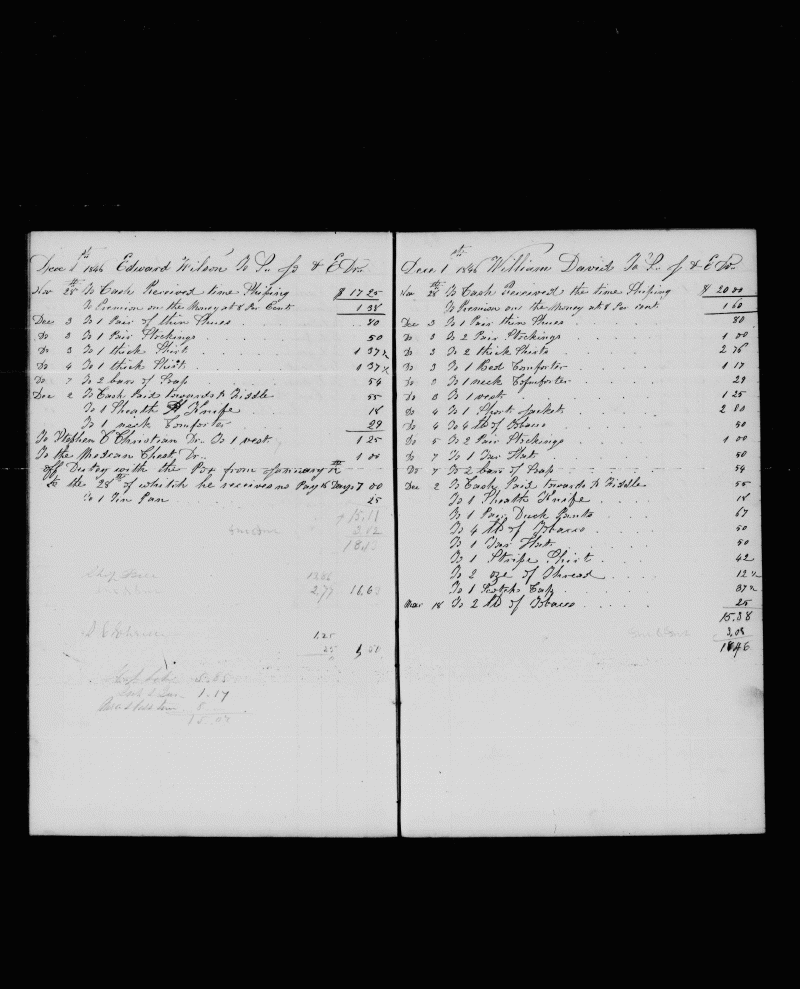 Dec 1th 1846 Edward Wilson To S. & E Dr.
Nov 28th To Cash Received time Shiping $ 17 25
To Premion on the Money at 8 Per Cent 1 38
Dec 3 To 1 Pair of thin Shues 80
Do 3 To 1 Pair Stockings 50
Do 3 To 1 thick Shirt 1 37½
Do 4 To 1 thick Shirt 1 37½
Do 7 To 2 bars of Soap 54
Dec 2 To Cash Paid towards Fiddle 55
To 1 Sheath Knife 18
To 1 neck Comforter 29
To Stephen C Christian Dr. To 1 vest 1 25
To the Medean Chest Dr. 1 00
off Dutey with the from January
to the 28th of which he receives no Pay Days 7 00
To 1 Tin Pan 25
15.11
18
2,77 16,6
1.25
25
1.17
Dec 1th 1846 William David To S. & E Dr.
Nov 28th To Cash Received the time Shiping $ 20 00
To Premion on the Money at 8 Per cent 1 60
Dec 3 To 1 Pair thin Shues 80
Do 3 To 2 Pair Stockings 1 00
Do 3 To 2 thick Shirts 2 76
Do 3 To 1 Red Comforter 1 17
Do 3 To 1 neck Comforter 29
Do 3 To 1 vest 1 25
Do 4 To 1 Short Jacket 2 80
Do 4 To 4 lb of Tobacco 50
Do 5 To 2 Pair Stockings 1 00
Do 7 To 1 Tar Hat 50
Do 7 To 2 bars of Soap 54
Dec 2 To Cash Paid towards Fiddle 55
To 1 Sheath Knife 18
To 1 Pair Duck Pants 67
To 4 lb of Tobacco 50
To 1 Tar Hat 50
To 1 Stripe Shirt 42
To 2 oze of Thread 12½
To 1 Scotch Cap 37½
Mar 18 To 2 lb of Tobacco 25
15.38
3,08
1846